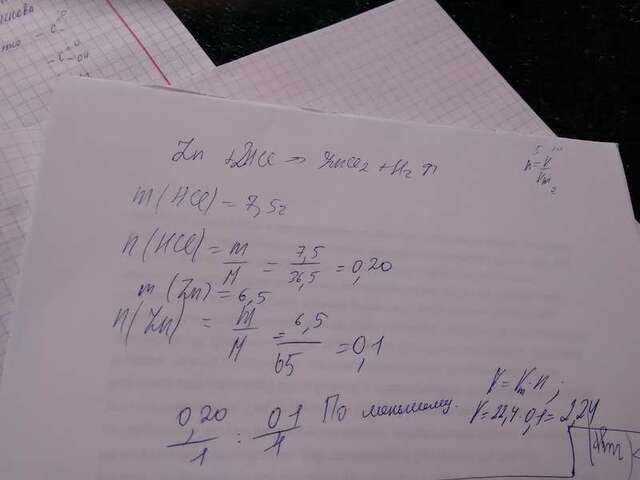 Zn + 2HCl → ZnCl₂ + H₂ ↑
n = V/Vm
m(HCl) = 7,5г
n(HCl) = m/M = 7,5/36,5 = 0,20
m(Zn) = 6,5
n(Zn) = m/M = 6,5/65 = 0,1
0,20/1 : 0,1/1 По меньшему.
V = Vm·n;
V = 22,4·0,1 = 2,24